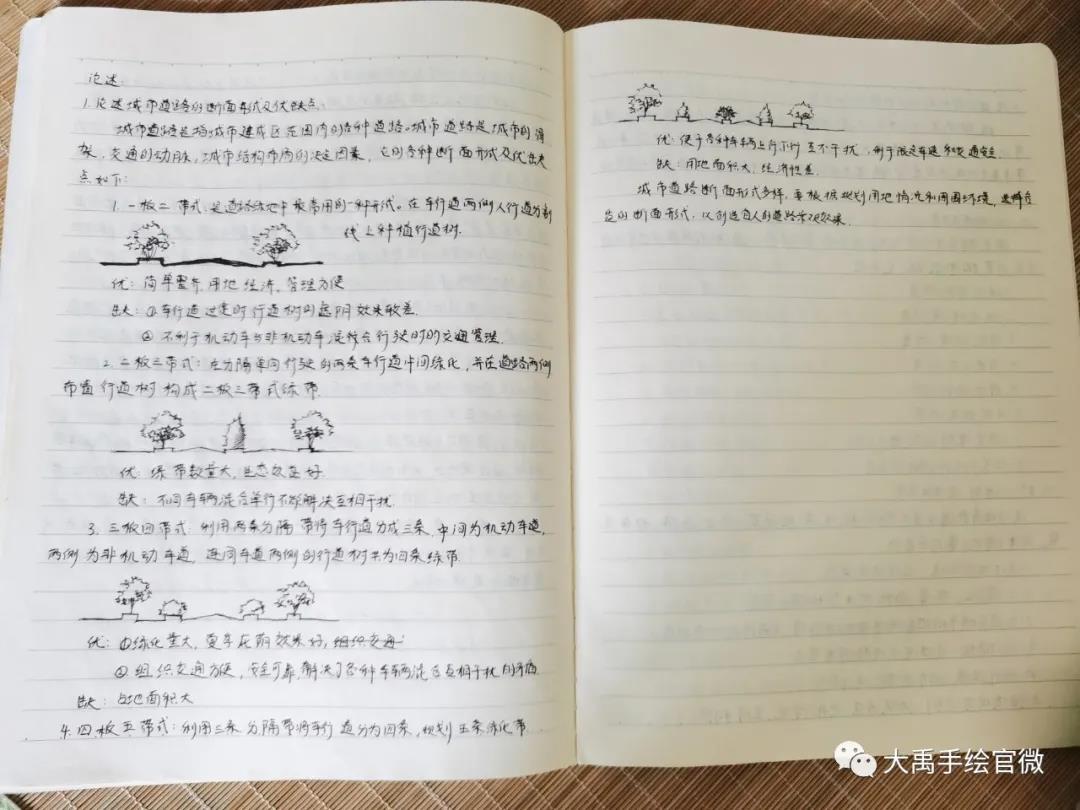 论述:
1.论述城市道路的断面形式及优缺点:
城市道路是指城市建成区范围内的各种道路。城市道路是城市的骨
架,交通的动脉,城市结构布局的决定因素,它的各种断面形式及优缺
点如下:
1.一板二带式:是道路绿地中最常用的一种形式。在车行道两侧人行道分割
线上种植行道树.
优:简单整齐,用地经济,管理方便
缺:①车行道过宽时行道树的遮阴效果较差.
②不利于机动车与非机动车混合行驶时的交通管理.
2.二板三带式:在分隔单向行驶的两条车行道中间绿化,并在道路两侧
布置行道树构成二板三带式绿带.
优:绿带数量大,生态效益好.
缺:不同车辆混合并行不能解决互相干扰.
3.三板四带式:利用两条分隔带将车行道分成三条,中间为机动车道,
两侧为非机动车道,连同车道两侧的行道树共为四条绿带.
优:①绿化量大,夏季庇阴效果好,组织交通
②组织交通方便,安全可靠,解决了各种车辆混合互相干扰的矛盾
缺:占地面积大
4.四板五带式:利用三条分隔带将车行道分为四条,规划五条绿化带.
优:便于各种车辆上行下行互不干扰,利于限定车速和交通安全.
缺:用地面积大,经济性差.
城市道路断面形式多样,要根据规划用地情况和周围环境,选择合
适的断面形式,以创造宜人的道路景观效果.
大禹手绘官微